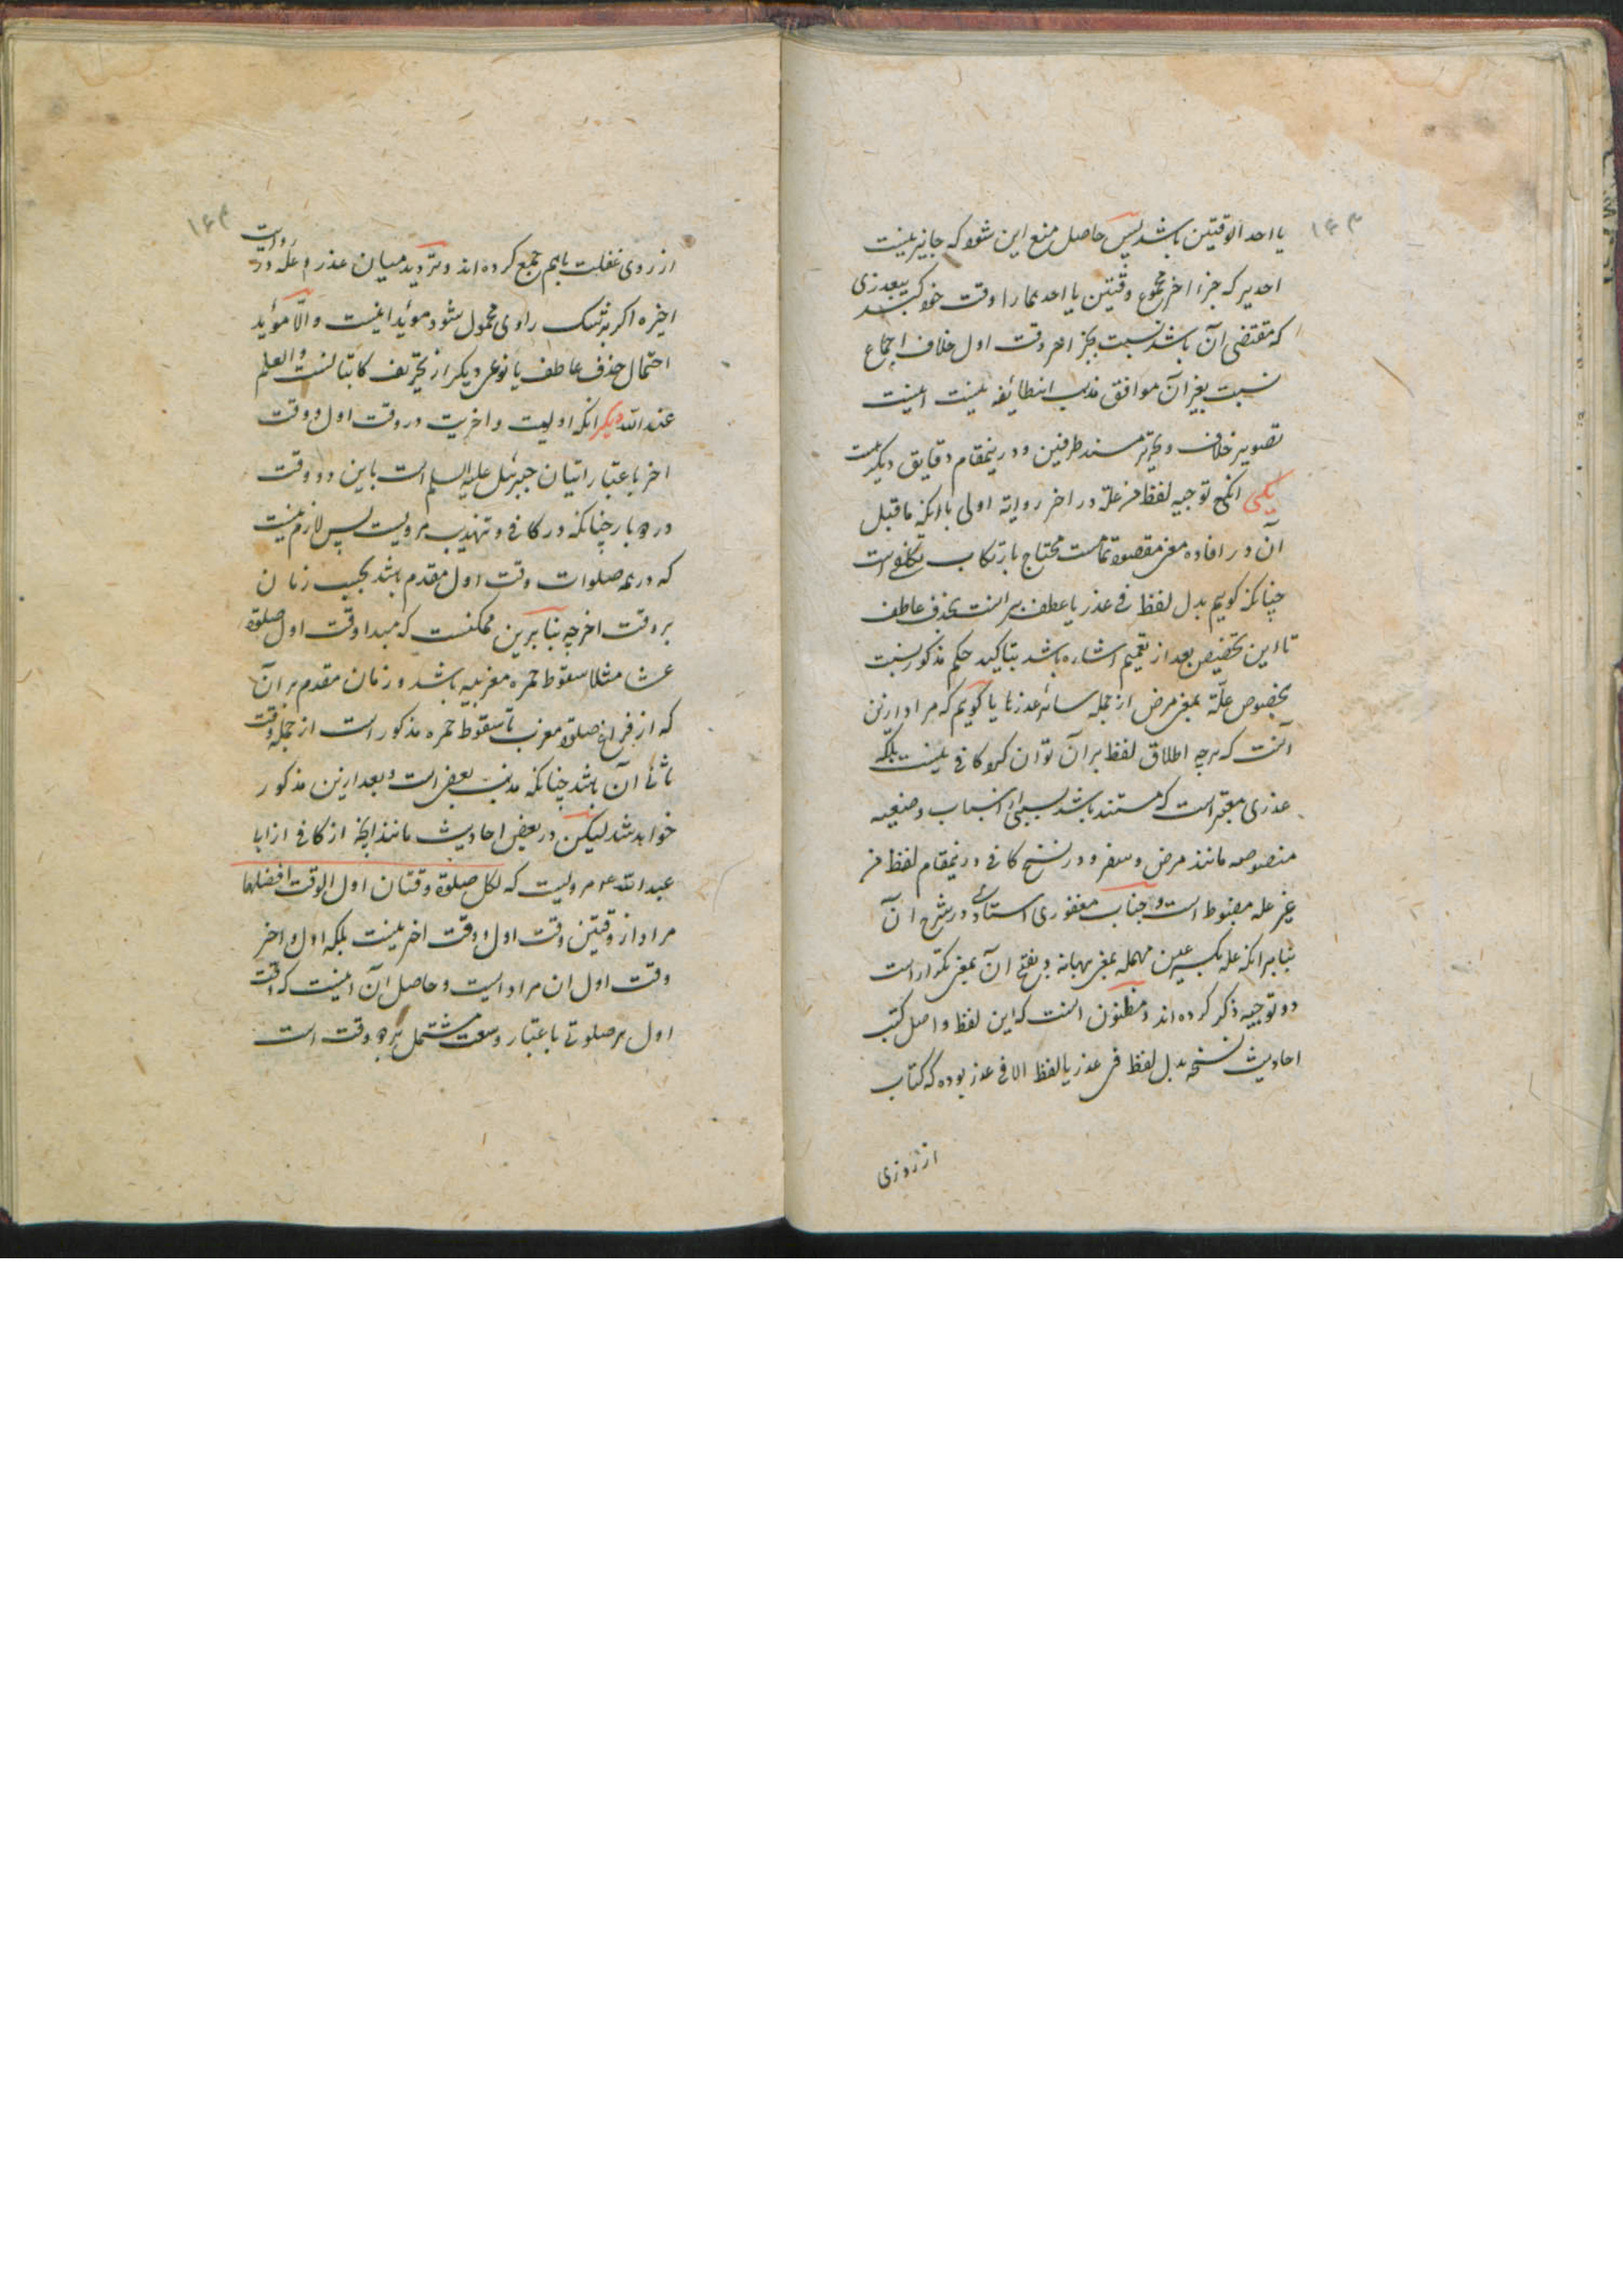 ۱۶۳
یا احد الوقتین باشد پس حاصل منع این شود که جایز نیست
احدیرا که جزء اخر مجموع وقتین یا احدهما را وقت خود کند بیعذری
که مقتضی آن باشد نسبت بجزء اخر وقت اول خلاف اجماع
نسبت بغیر آن موافق مذهب انطائفه نیست اینست
تصویر خلاف و تحریر مستند طرفین و درینمقام دقایق دیکر هست
یکی انکه توجیه لفظ من علة در اخر روایة اولی با انکه ماقبل
آن در افاده معنی مقصود تمامست محتاج بارتکاب تکلفی است
چنانکه کوییم بدل لفظ فی عذر یا عطف بر انست بحذف عاطف
تا این تخصیص بعد از تعمیم اشاره باشد بتاکید حکم مذکور نسبت
بخصوص علّة بمعنی مرض از جمله سائر عذرها یا کوییم که مراد ازین
آنست که هرچه اطلاق لفظ بر آن توان کرد کافی نیست بلکه
عذری معتبر است که مستند باشد بسببی از اسباب
منصوصه مانند مرض و سفر و در نسخ کافی درینمقام لفظ من
غیر علة مضبوط است و جناب مغفوری استادی در شرح آن
بنابر انکه علة بکسر عین مهمله بمعنی بهانه و بفتح آن بمعنی تکرار است
دو توجیه ذکر کرده اند و مظنون انست که این لفظ در اصل کتب
احادیث نسخه بدل لفظ فی عذر یا لفظ الا فی عذر بوده که کتاب
از روی
۱۶۴
از روی غفلت باهم جمع کرده اند و تردید میان عذر و علة در روایت
اخیره اکر بر شک راوی محمول شود مؤید اینست و الّا مؤید
احتمال حذف عاطف یا نوعی دیکر از تحریف کاتبانست والعلم
عند الله دیکر انکه اولیت و اخریت در وقت اول و وقت
اخر باعتبار اتیان جبرئیل علیه السلم است باین دو وقت
در دو بار چنانکه در کافی و تهذیب مرویست پس لازم نیست
که در همه صلوات وقت اول مقدم باشد بحسب زمان
بر وقت اخر چه بنابرین ممکنست که مبدا وقت اول صلوة
عشا مثلا سقوط حمره مغربیه باشد و زمان مقدم بر آن
که از فراغ صلوة مغرب تا سقوط حمره مذکور است از جمله وقت
ثانی آن باشد چنانکه مذهب بعضی است و بعد ازین مذکور
خواهد شد لیکن در بعضی احادیث مانند انچه از کافی از ابا
عبد الله ع مرویست که لکل صلوة وقتان اول الوقت افضلهما
مراد از وقتین وقت اول و وقت اخر نیست بلکه اول و اخر
وقت اول ان مراد است و حاصل آن اینست که وقت
اول هر صلوتی باعتبار وسعت مشتمل بر دو وقت است